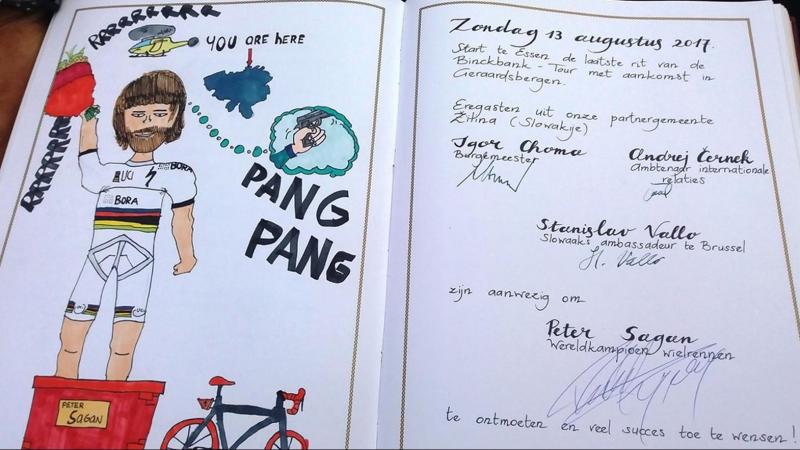 RRRRRRRRR
YOU ARE HERE
RRRRRRR
UCI
BORA
BORA
PANG
PANG
PETER
SAGAN
Zondag 13 augustus 2017.
Start te Essen de laatste rit van de
Binckbank - Tour met aankomst in
Geraardsbergen.
Eregasten uit onze partnergemeente
Žilina (Slowakije)
Igor Choma
Burgemeester
Andrej Černek
Ambtenaar internationale
relaties
Stanislav Vallo
Slowaaks ambassadeur te Brussel
St. Vallo
zijn aanwezig om
Peter Sagan
Wereldkampioen wielrennen
te ontmoeten en veel succes toe te wensen!